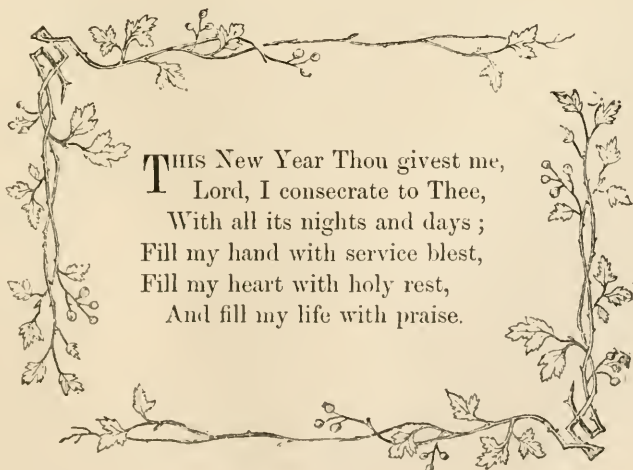 THIS New Year Thou givest me,
Lord, I consecrate to Thee,
With all its nights and days ;
Fill my hand with service blest,
Fill my heart with holy rest,
And fill my life with praise.